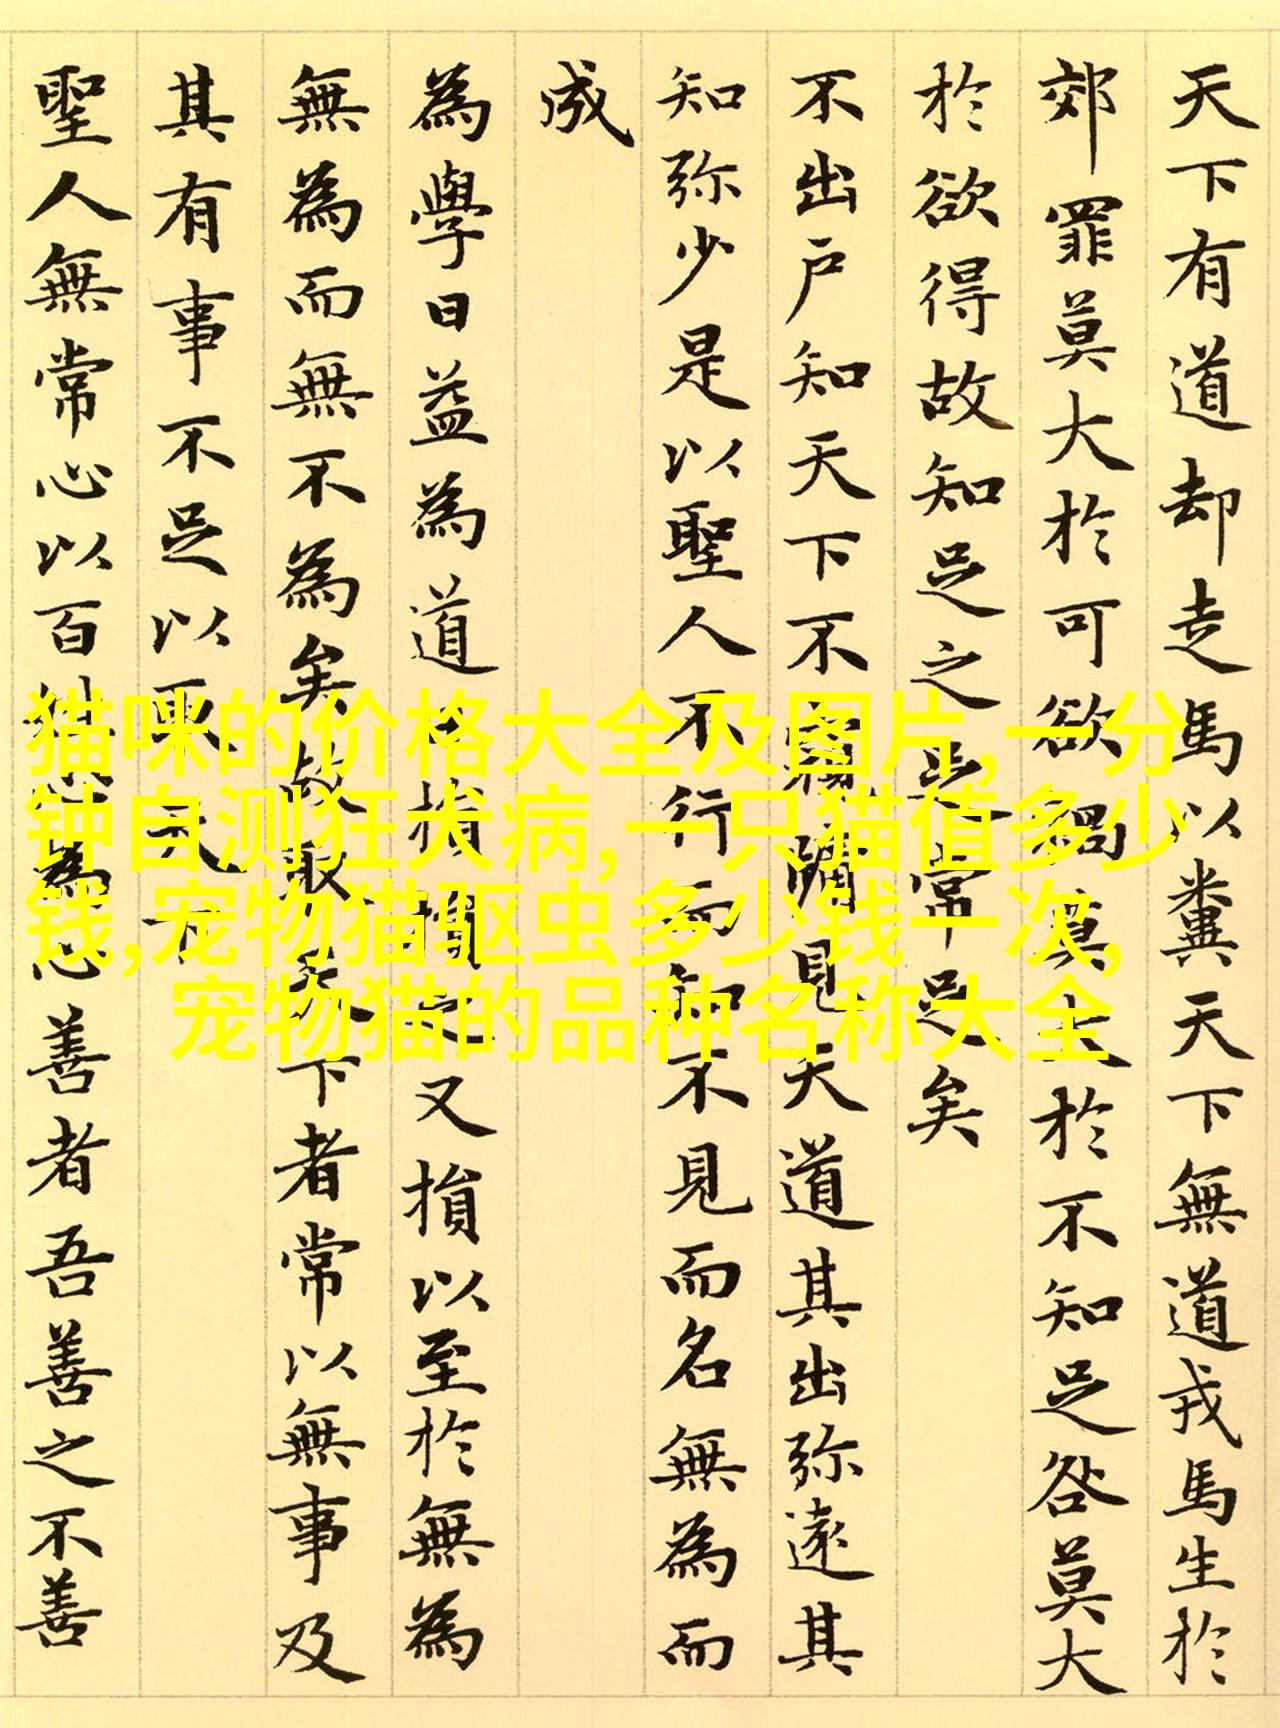 天下有道却走馬以糞天下無道戎馬生於
郊罪莫大於可欲禍莫大於不知足咎莫大
於欲得故知足之足常足矣
不出户知天下不窺牖見天道其出弥遠其
知弥少是以聖人不行而知不見而名無為而
成
為學日益為道日損損之又損以至於無為
無為而無不為矣故取天下者常以無事及
其有事不足以取天下
聖人無常心以百姓心為心善者吾善之不善
猫咪的价格大全及图片,一分
钟自测狂犬病,一只猫值多少
钱,宠物猫驱虫多少钱一次,
宠物猫的品种名称大全